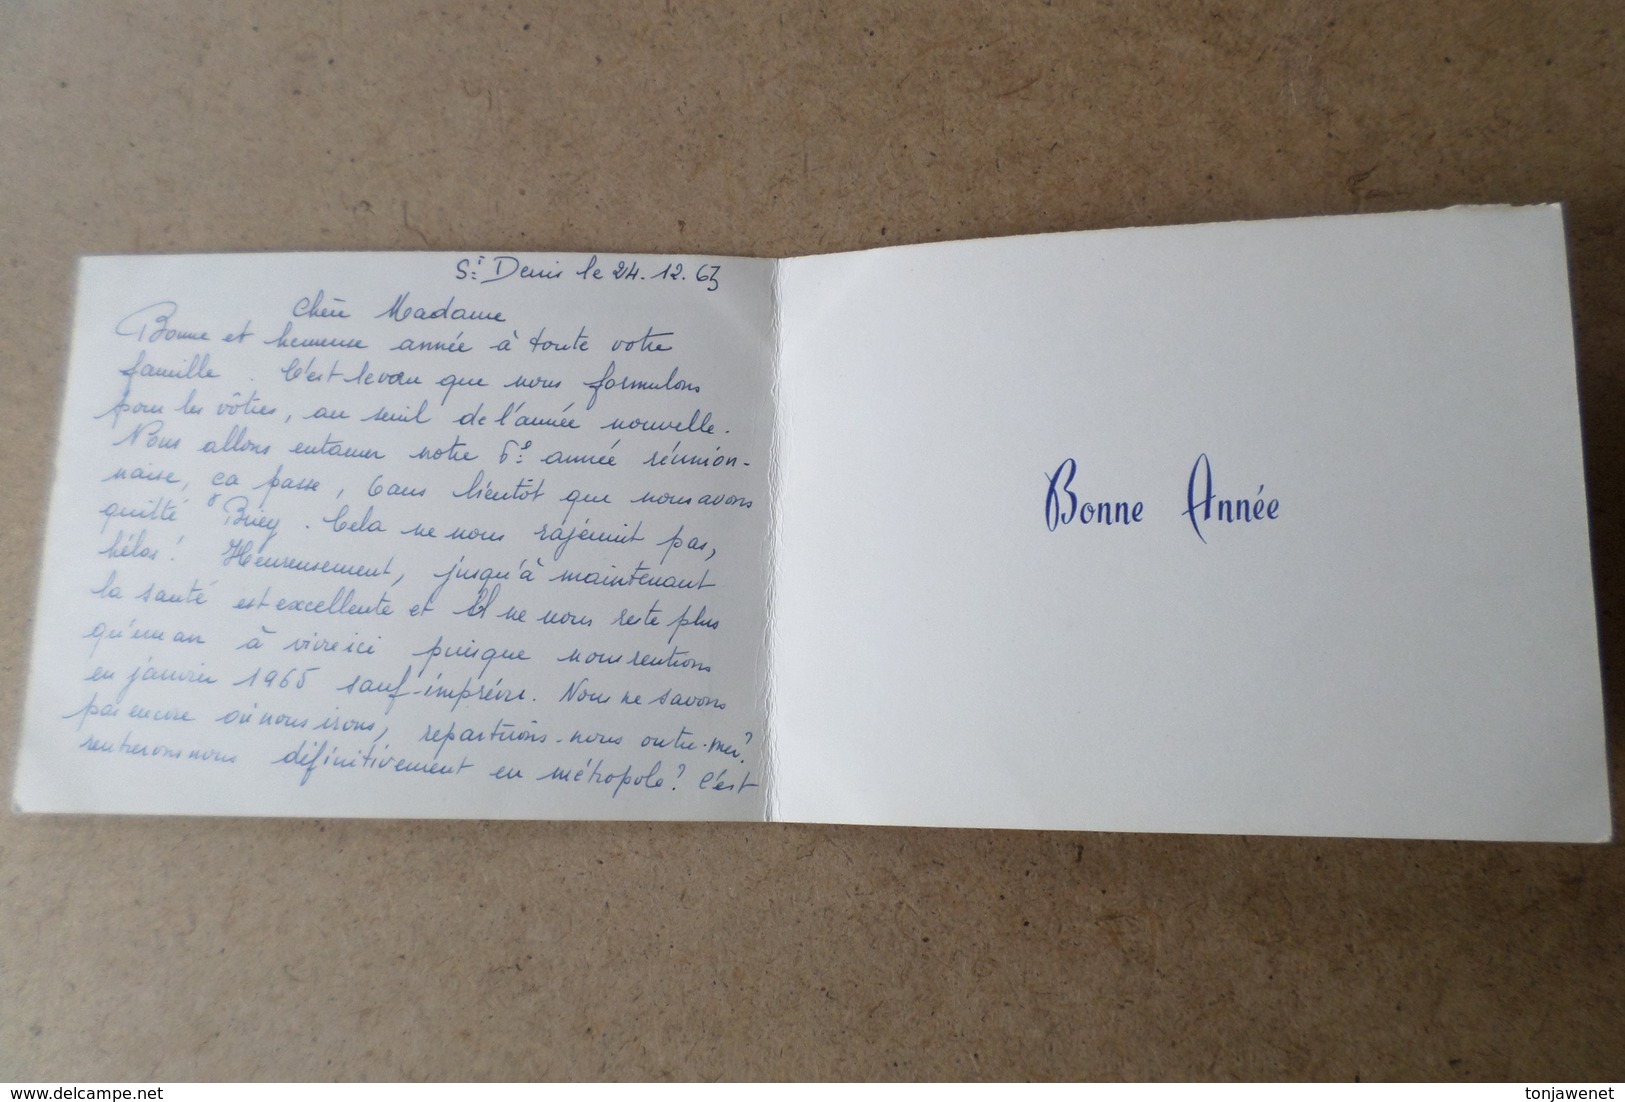 St Denis le 24.12.63
Chère Madame
Bonne et heureuse année à toute votre
famille. C'est le vœu que nous formulons
pour les vôtres, au seuil de l'année nouvelle.
Nous allons entamer notre 6e année réunion-
naise, ça passe, 6 ans bientôt que nous avons
quitté Briey. Cela ne nous rajeunit pas,
hélas! Heureusement, jusqu'à maintenant
la santé est excellente et il ne nous reste plus
qu'un an à vivre ici puisque nous rentrons
en janvier 1965 sauf imprévu. Nous ne savons
pas encore où nous irons, repartirons-nous outre-mer?
rentrerons nous définitivement en métropole? C'est
Bonne Année
delcampe.net
tonjawenet